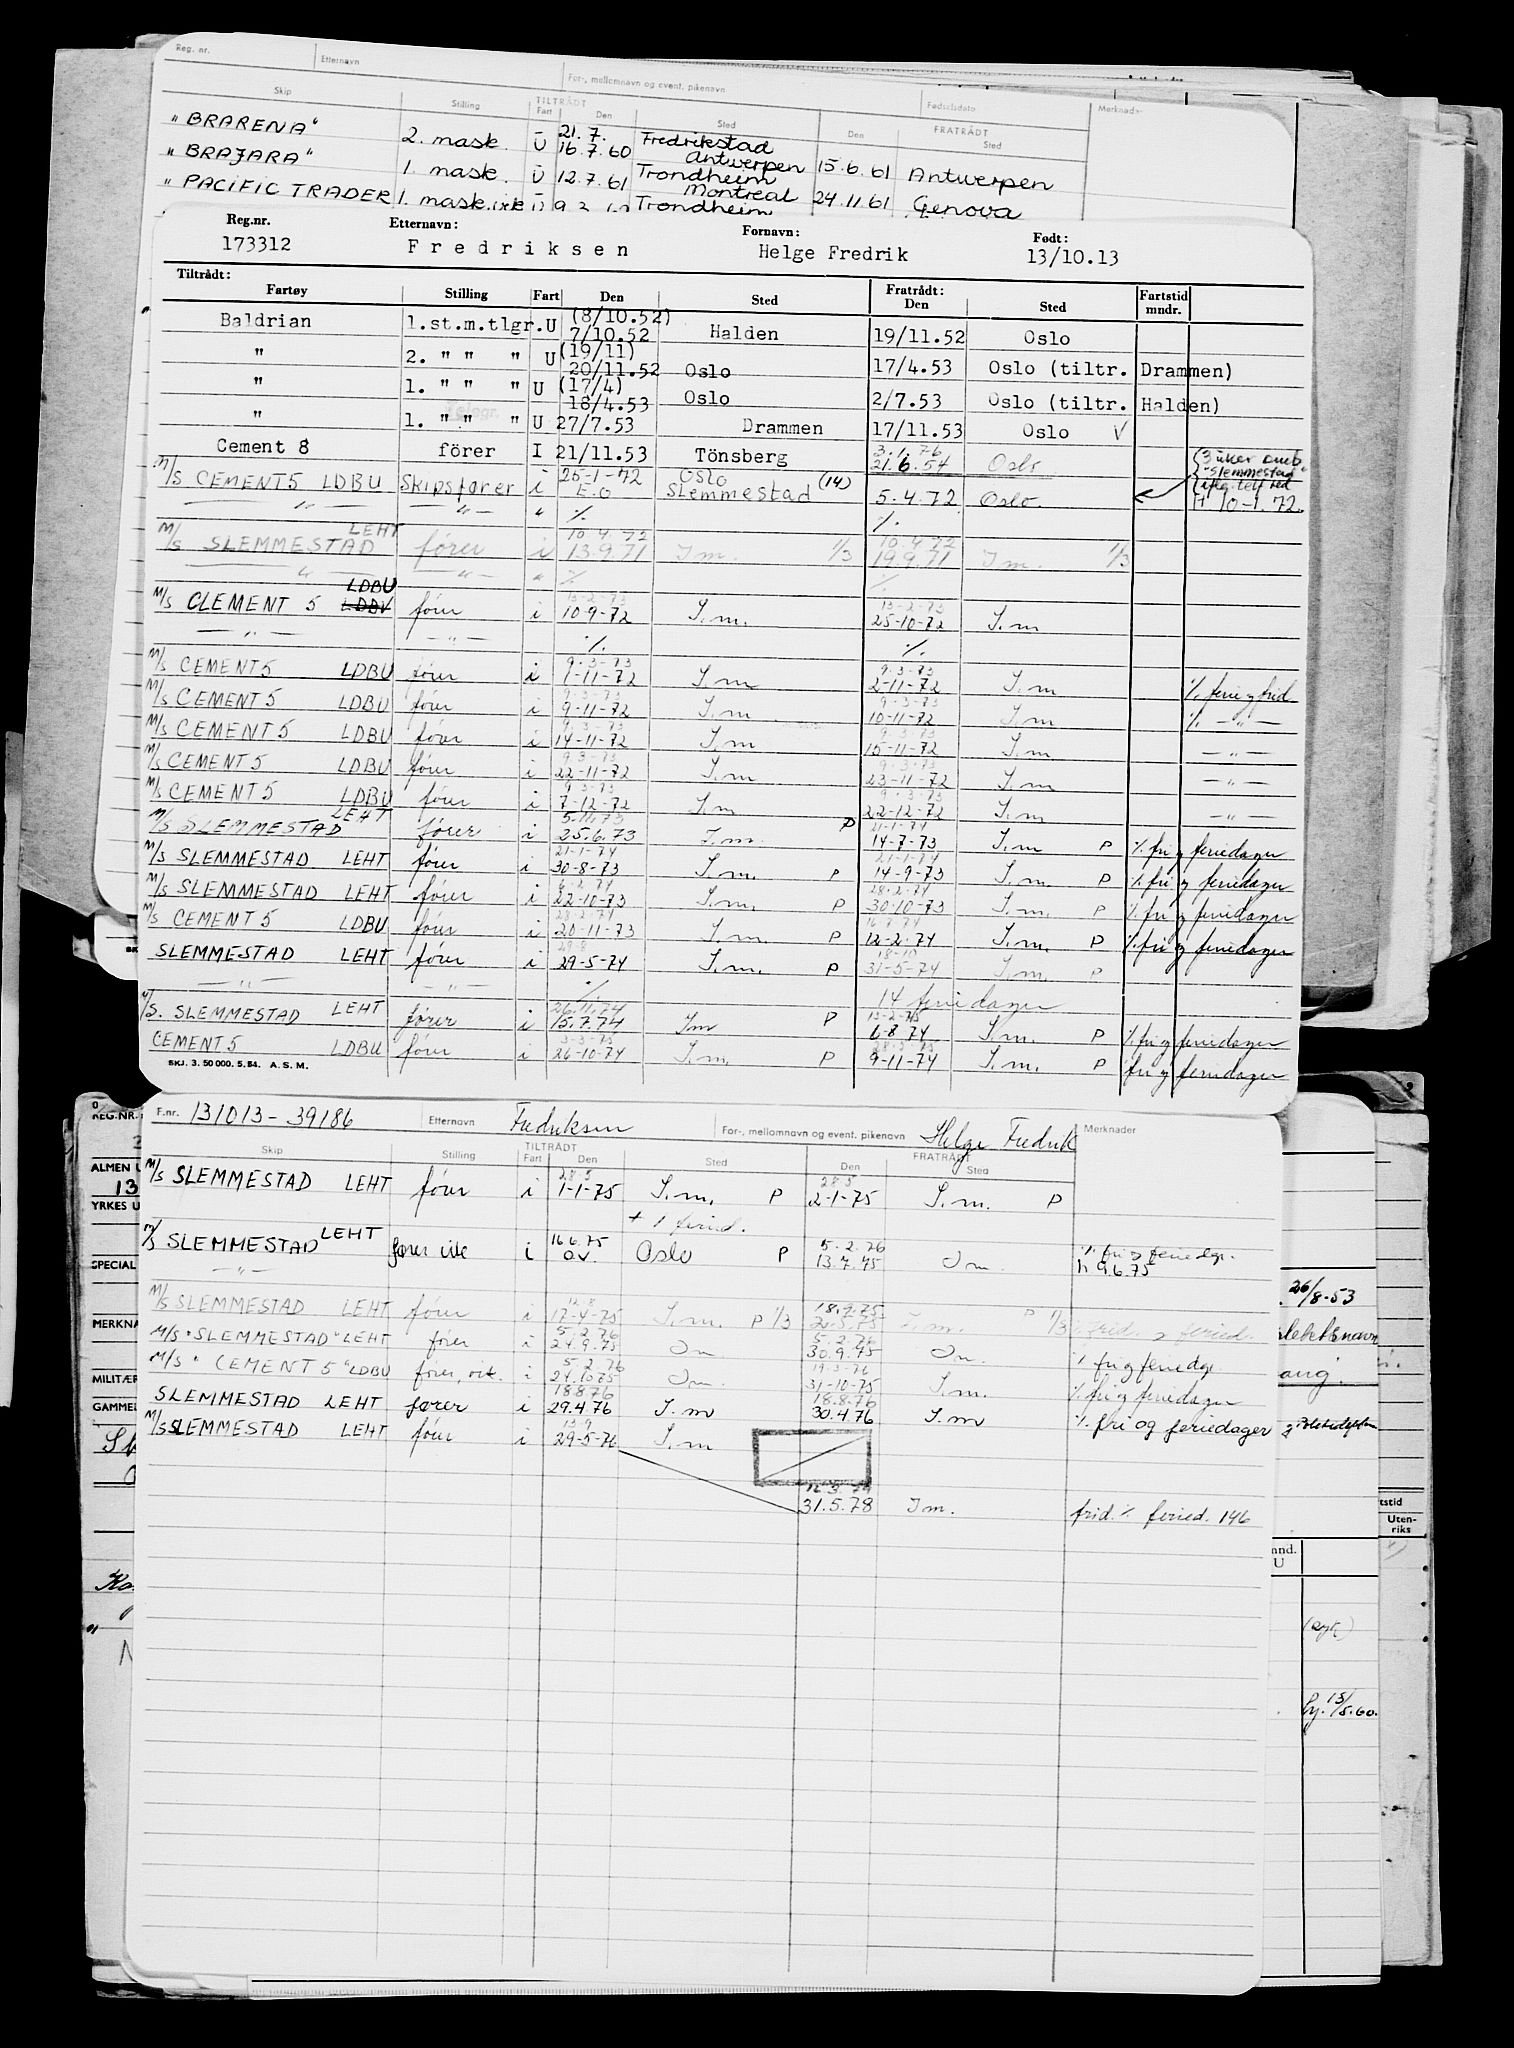 Reg. nr. Etternavn For-, mellomnavn og event. pikenavn Fødselsdato Merknader
Skip Stilling TILTRÅDT Fart Den Sted Den FRATRÅDT Sted
"BRARENA" 2. mask. Ü 21.7. 16.7.60 Fredrikstad Antwerpen 15.6.61 Antwerpen
"BRAJARA" 1. mask. Ü 12.7.61 Trondheim Montreal 24.11.61 Genova
"PACIFIC TRADER 1. mask. Trondheim
Reg.nr. Etternavn: Fornavn: Født:
173312 Fredriksen Helge Fredrik 13/10.13
Tiltrådt: Fratrådt:
Fartøy Stilling Fart Den Sted Den Sted Fartstid mndr.
Baldrian 1.st.m.tlgr. U (8/10.52) 7/10.52 Halden 19/11.52 Oslo
" 2. " " " U (19/11) 20/11.52 Oslo 17/4.53 Oslo (tiltr. Drammen)
" 1. " " " U (17/4) 18/4.53 Oslo 2/7.53 Oslo (tiltr. Halden)
" 1. " " " U 27/7.53 Drammen 17/11.53 Oslo V
Cement 8 förer I 21/11.53 Tönsberg 3.1.76 21.6.54 Oslo
M/S CEMENT 5 LDBU Skipsfører i 25-1-72 E.O Oslo Slemmestad (14) 5.4.72 Oslo. (3 uker omb. "Slemmestad" iflg. telf red H 10-1.72.
— " — — " — " %. %.
M/S SLEMMESTAD LEHT fører i 10.4.72 13.9.71 I m. 1/3 10.4.72 19.9.71 I m. 1/3
— " — — " — " %. %.
M/S CLEMENT 5 LDBU LDBV fører i 13-2-73 10-9-72 I.m. 13-2-73 25-10-72 I.m
— " — — " — %. %.
M/S CEMENT 5 LDBU fører i 9.3-73 1-11-72 I.m 9.3-73 2-11-72 I.m %. ferie og frid.
M/S CEMENT 5 LDBU fører i 9-3-73 9-11-72 I.m 9-3-73 10-11-72 I.m %. — " —
M/S CEMENT 5 LDBU fører i 9-3-73 14-11-72 I.m 9.3-73 15-11-72 I.m — " —
M/S CEMENT 5 LDBU fører i 9.3-73 22-11-72 I.m 9.3-73 23-11-72 I.m — " —
M/S CEMENT 5 LDBU fører i 9.3-73 7-12-72 I.m 9-3-73 22-12-72 I.m — " —
M/S SLEMMESTAD LEHT fører i 5.11.73 25.6.73 I.m. P 21-1-74 14-7-73 I.m P %. fri og feriedager
M/S SLEMMESTAD LEHT fører i 21-1-74 30-8-73 I.m. P 21-1-74 14-9-73 I.m. P %. fri og feriedager
M/S SLEMMESTAD LEHT fører i 6.2.74 22-10-73 I.m. P 28-2-74 30-10-73 I.m. P %. fri og feriedager
M/S CEMENT 5 LDBU fører i 28-2-74 20-11-73 I.m. P 12-2-74 I.m. P %. fri og feriedager
SLEMMESTAD LEHT fører i 29-5-74 I.m. P 18-10 31-5-74 I.m. P
— " — — " — %. 14 feriedager
M/S. SLEMMESTAD LEHT fører i 26.11.74 15.7.74 Im P 13-2-75 6-8.74 I.m. P %. fri og feriedager
CEMENT 5 LDBU fører i 3-3-75 26-10-74 I.m. P 28-5-75 9-11-74 I.m. P fri og feriedager
SKJ. 3. 50 000. 5. 54. A. S. M.
F.nr. 131013-39186 Etternavn Fredriksen For-, mellomnavn og event. pikenavn Helge Fredrik Merknader
Skip Stilling TILTRÅDT Fart Den Sted Den FRATRÅDT Sted
M/S SLEMMESTAD LEHT fører i 28-5 1-1-75 I.m. P 28.5 2-1-75 I.m. P
+ 1 feried.
M/S SLEMMESTAD LEHT fører i 16.6.75 OV. Oslo P 5.2.76 13.7.75 I m. %. fri og feriedgr. H 9.6.75
— " —
M/S SLEMMESTAD LEHT fører i 12.8 17-4-75 I.m. P 1/3 18.9.75 I.m. P 1/3 frid. og feried.
M/S "SLEMMESTAD" LEHT fører i 5.2.76 24.9.75 Im 5.2.76 30.9.75 Im. %. fri og feriedgr.
M/S "CEMENT 5" LDBU fører, i 5.2.76 24.10.75 Im. 19-3-76 31-10-75 I.m. %. fri og feriedager
SLEMMESTAD LEHT fører i 18.8.76 29.4.76 I.m 18.8.76 30.4.76 I.m %. fri og feriedager
M/S SLEMMESTAD LEHT fører i 13-9 29-5-76 I.m
31.5.78 I m. frid. %. feried. 146
REG.NR.
ALMEN
13
YRKES
SPECIAL
MERKNA
MILITÆR
GAMMEL
26/8-53
tstid
Uten-riks
mnd.
U
13/5.60.